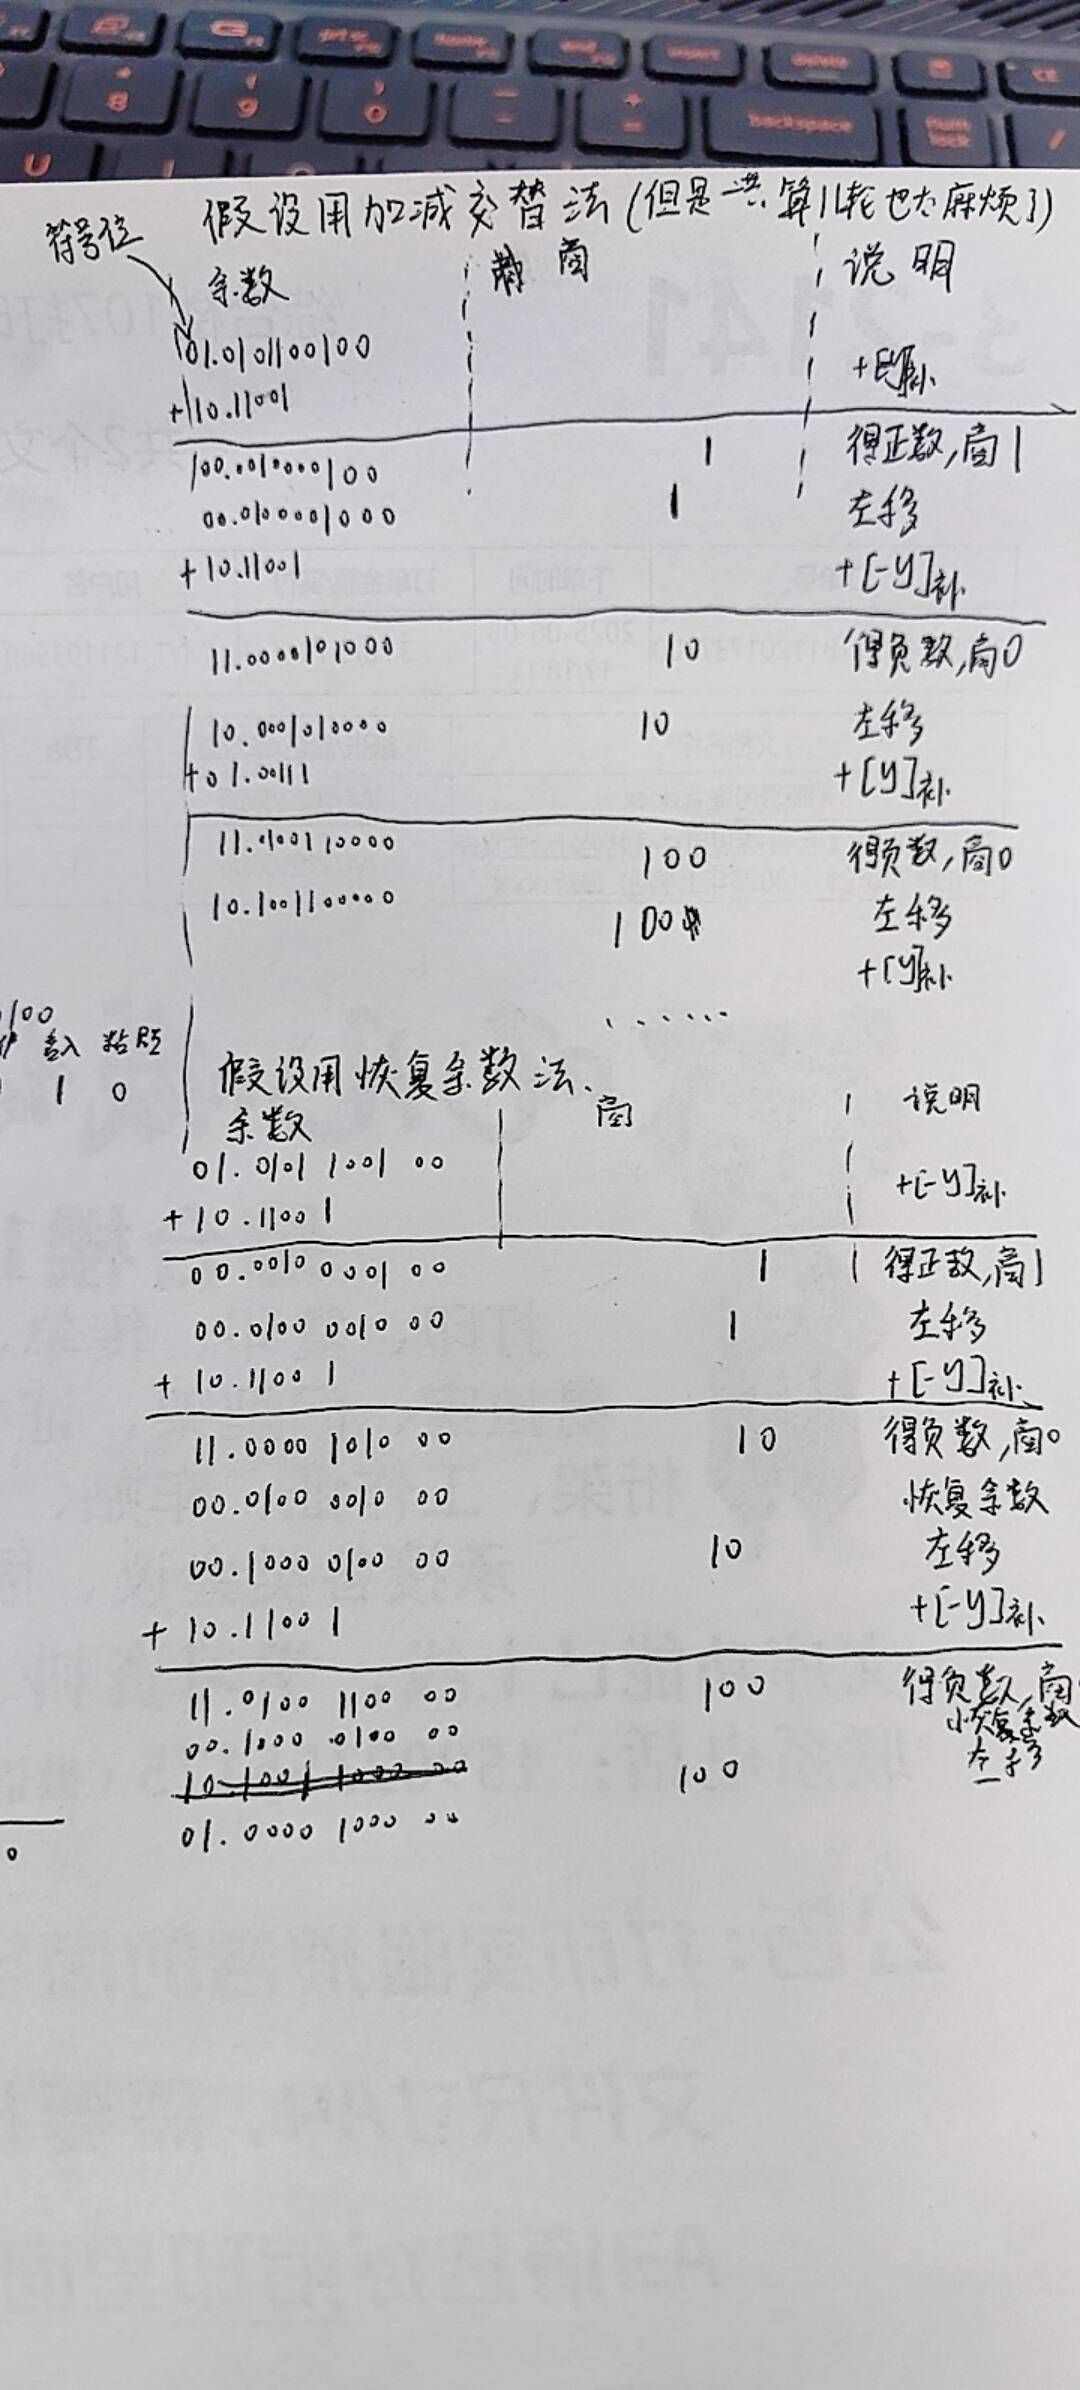 8
9
0
backspace
num lock
/
U
假设用加减交替法(但是一共算11轮也太麻烦了)
符号位
余数 商 说明
01.0101100100
+[-y]补
+10.11001
100.0010000100 1 得正数,商1
00.0100001000 1 左移
+10.11001 +[-y]补
11.0000101000 10 得负数,商0
10.0001010000 10 左移
+01.00111 +[y]补
11.0100110000 100 得负数,商0
10.1001100000 100 左移
+[y]补
......
100
舍入 粘贴
1 0
假设用恢复余数法、
余数 商 说明
01.0101 1001 00
+[-y]补
+10.1100 1
00.0010 0001 00 1 得正数,商1
00.0100 0010 00 1 左移
+10.1100 1 +[-y]补
11.0000 1010 00 10 得负数,商0
00.0100 0010 00 恢复余数
00.1000 0100 00 10 左移
+10.1100 1 +[-y]补
11.0100 1100 00 100 得负数,商
00.1000 0100 00 恢复余数
10.1001 1000 00 100 左移
01.0000 1000 00
0